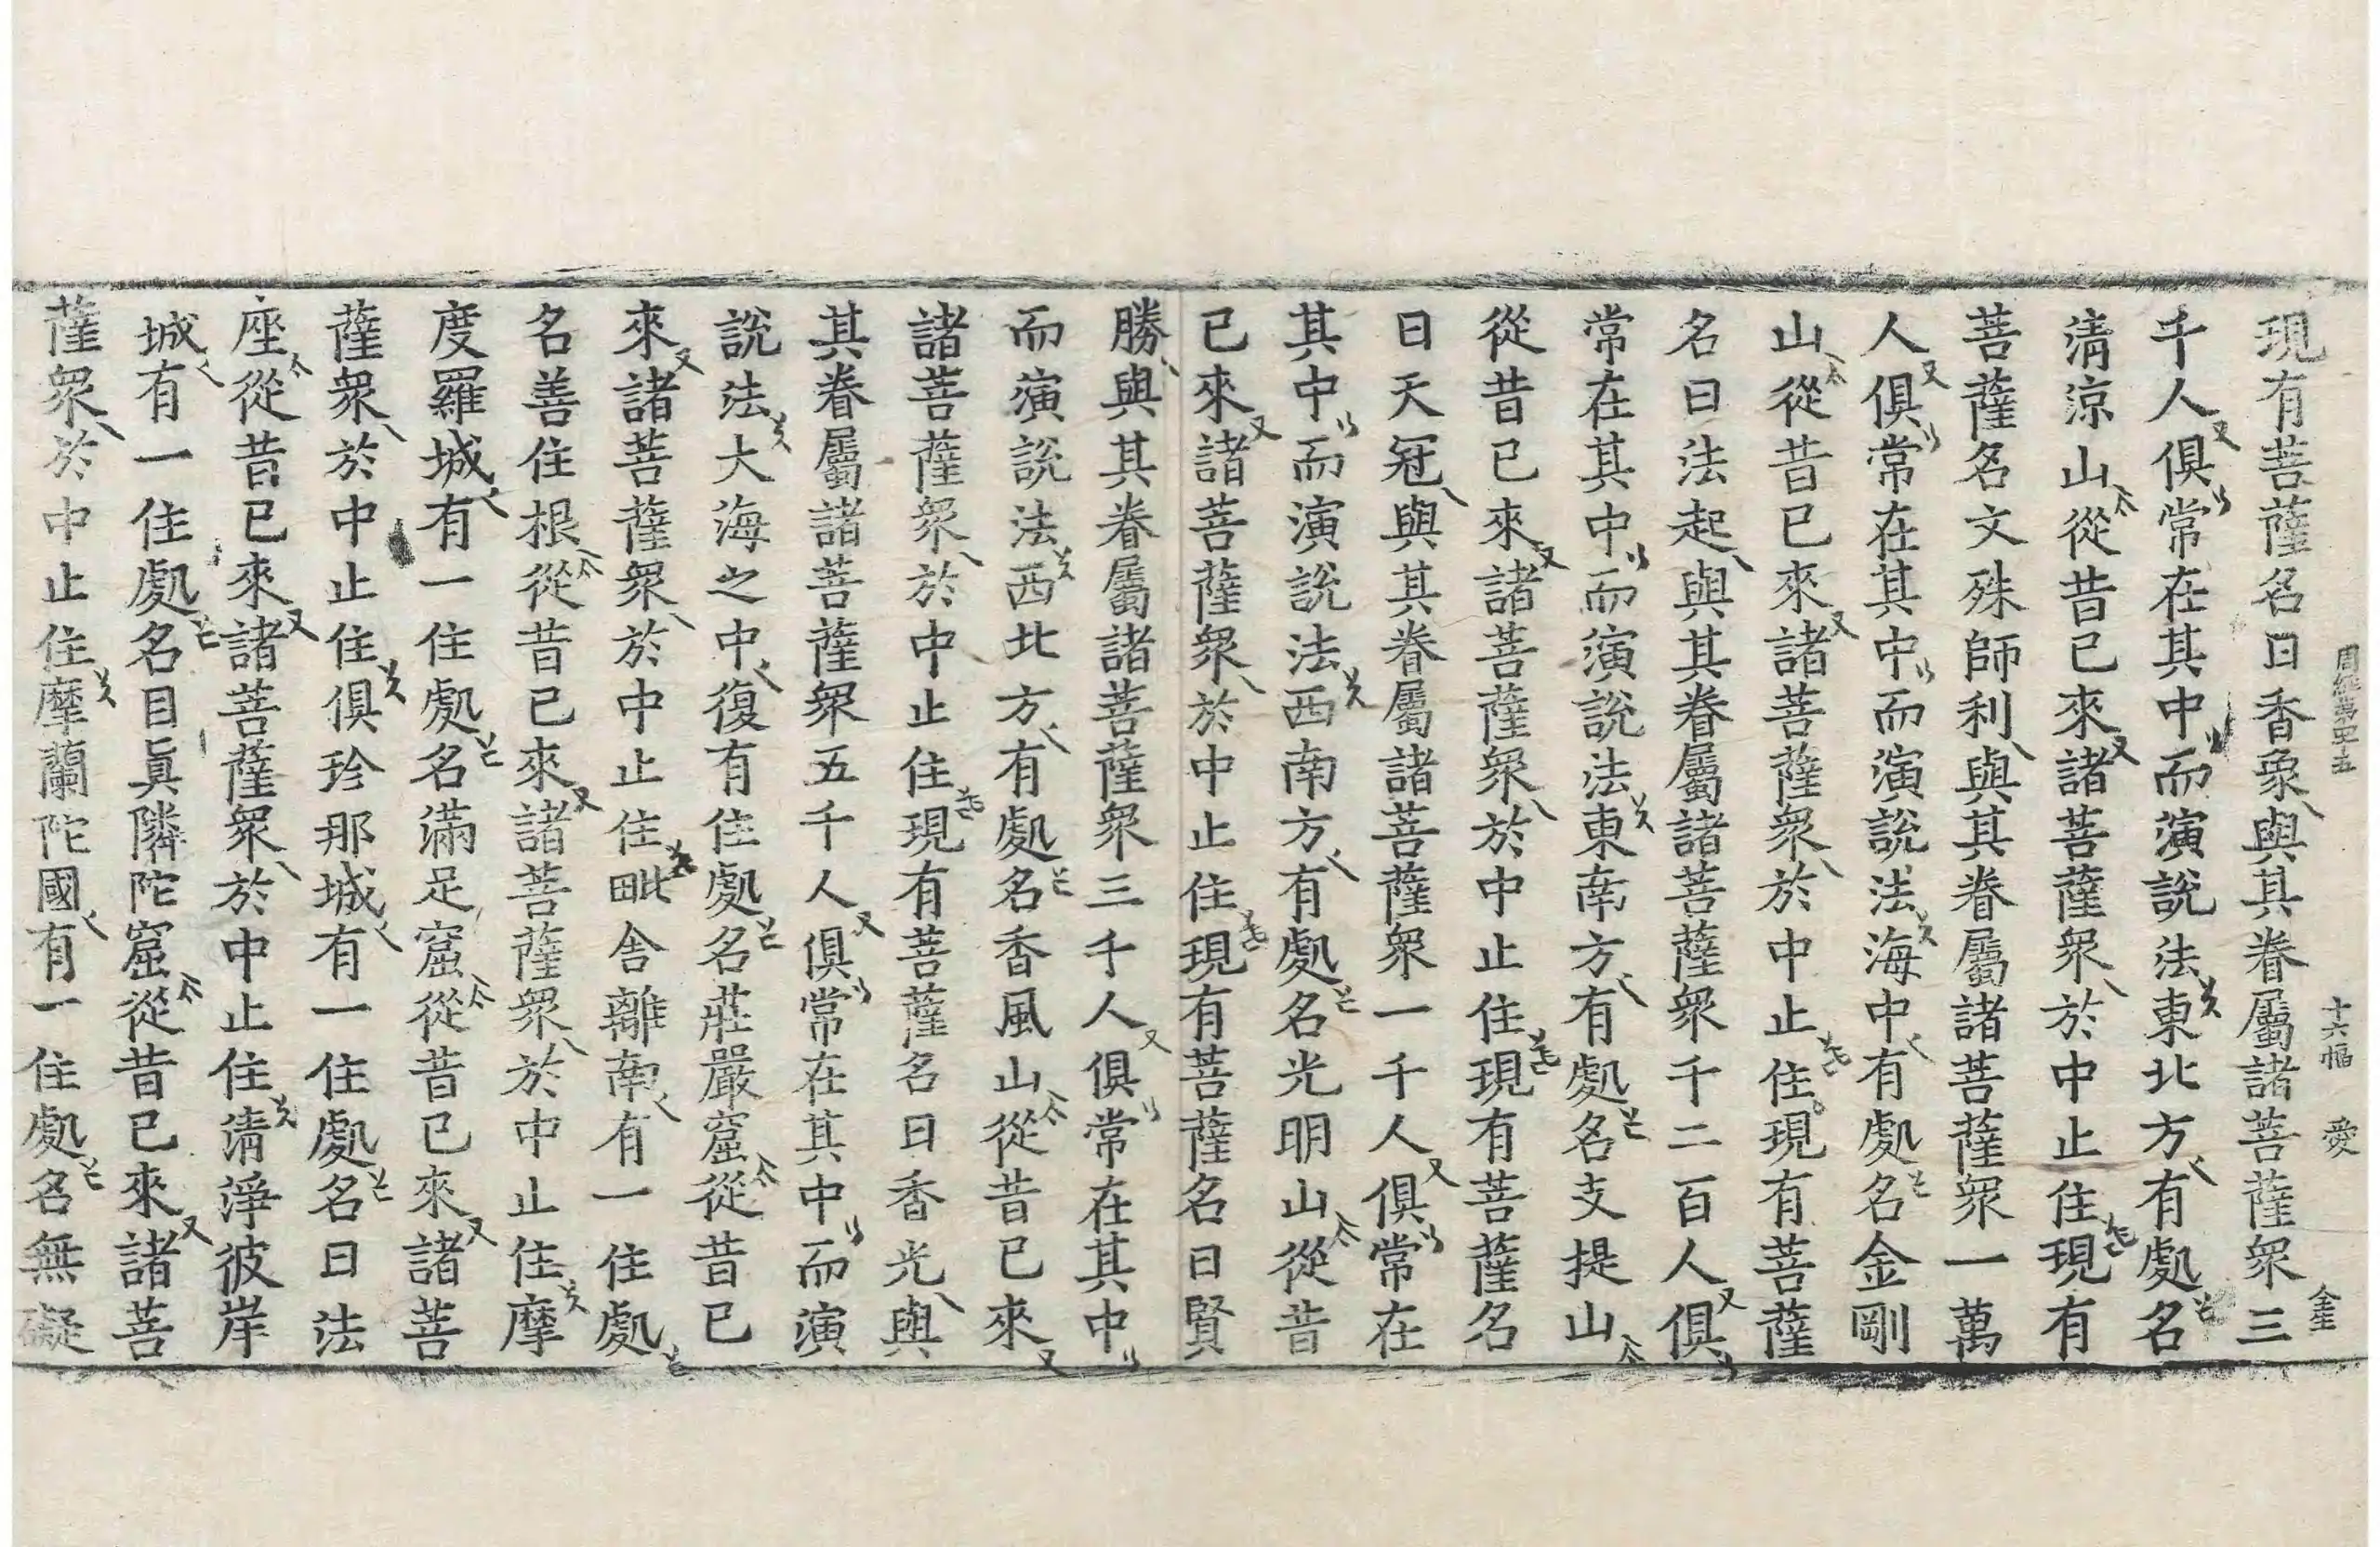 周經第四十五 十六幅 愛
現有菩薩名曰香象與其眷屬諸菩薩衆三
千人俱常在其中而演說法東北方有處名
清涼山從昔已來諸菩薩衆於中止住現有
菩薩名文殊師利與其眷屬諸菩薩衆一萬
人俱常在其中而演說法海中有處名金剛
山從昔已來諸菩薩衆於中止住現有菩薩
名曰法起與其眷屬諸菩薩衆千二百人俱
常在其中而演說法東南方有處名支提山
從昔已來諸菩薩衆於中止住現有菩薩名
曰天冠與其眷屬諸菩薩衆一千人俱常在
其中而演說法西南方有處名光明山從昔
已來諸菩薩衆於中止住現有菩薩名曰賢
勝與其眷屬諸菩薩衆三千人俱常在其中
而演說法西北方有處名香風山從昔已來
諸菩薩衆於中止住現有菩薩名曰香光與
其眷屬諸菩薩衆五千人俱常在其中而演
說法大海之中復有住處名莊嚴窟從昔已
來諸菩薩衆於中止住毗舍離南有一住處
名善住根從昔已來諸菩薩衆於中止住摩
度羅城有一住處名滿足窟從昔已來諸菩
薩衆於中止住俱珍那城有一住處名曰法
座從昔已來諸菩薩衆於中止住清淨彼岸
城有一住處名目眞隣陀窟從昔已來諸菩
薩衆於中止住摩蘭陀國有一住處名無礙